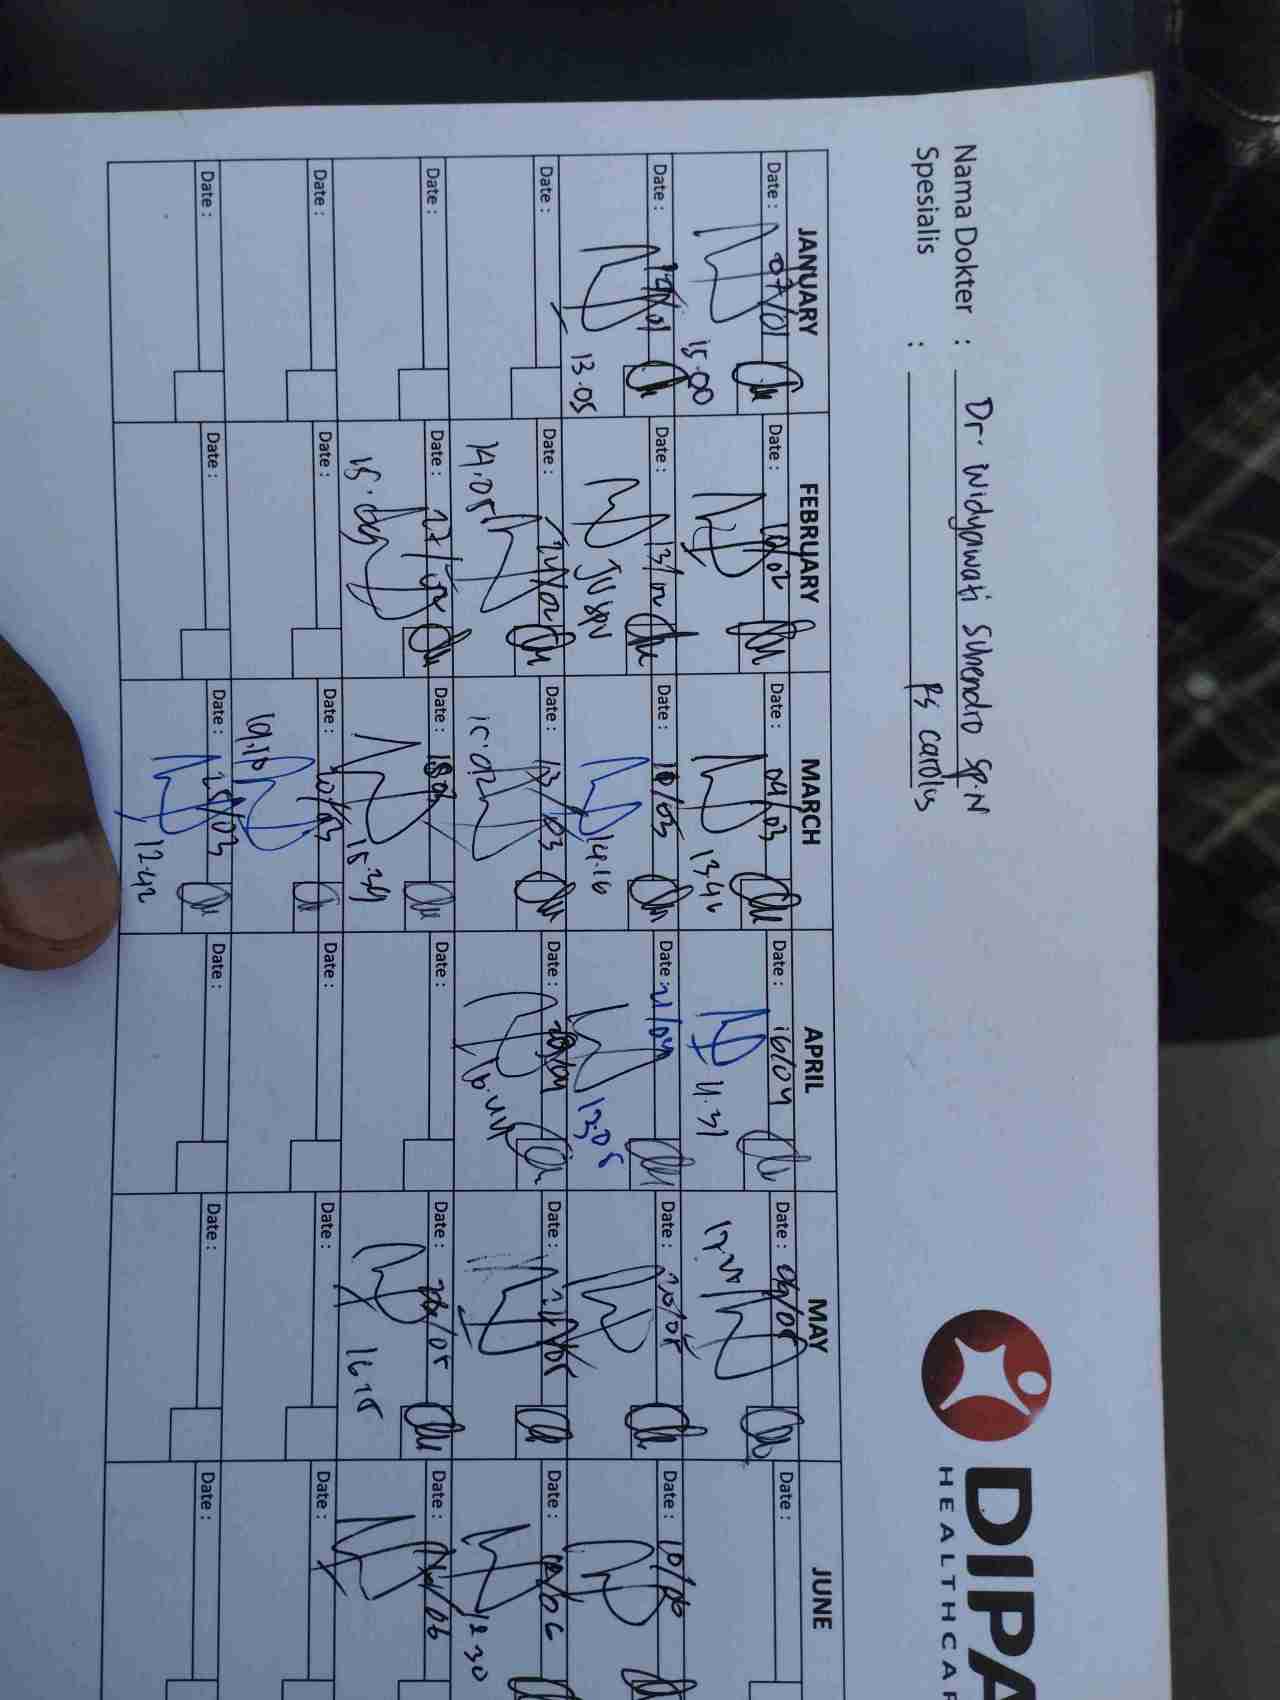 DIPA
HEALTHCAR
Nama Dokter : Dr. Widyawati Suhendro Sp.N
Spesialis : RS Carolus
JANUARY FEBRUARY MARCH APRIL MAY JUNE
Date : 07/01 Date : 10/02 Date : 04/03 Date : 16/04 Date : 06/05 Date :
15.00 13.46 11.37
Date : 14/01 Date : 13/02 Date : 10/03 Date : 21/04 Date : 20/05 Date : 10/06
13.05 JV SPV 14.16 13.05
Date : Date : 24/02 Date : 13/03 Date : 28/04 Date : 21/05 Date : 12/06
14.05 15.02 12.30
Date : Date : 27/02 Date : 18/03 Date : Date : 26/05 Date : 24/06
15.39 16.15
Date : Date : Date : 20/03 Date : Date : Date :
19.10
Date : Date : Date : 25/03 Date : Date : Date :
12.42